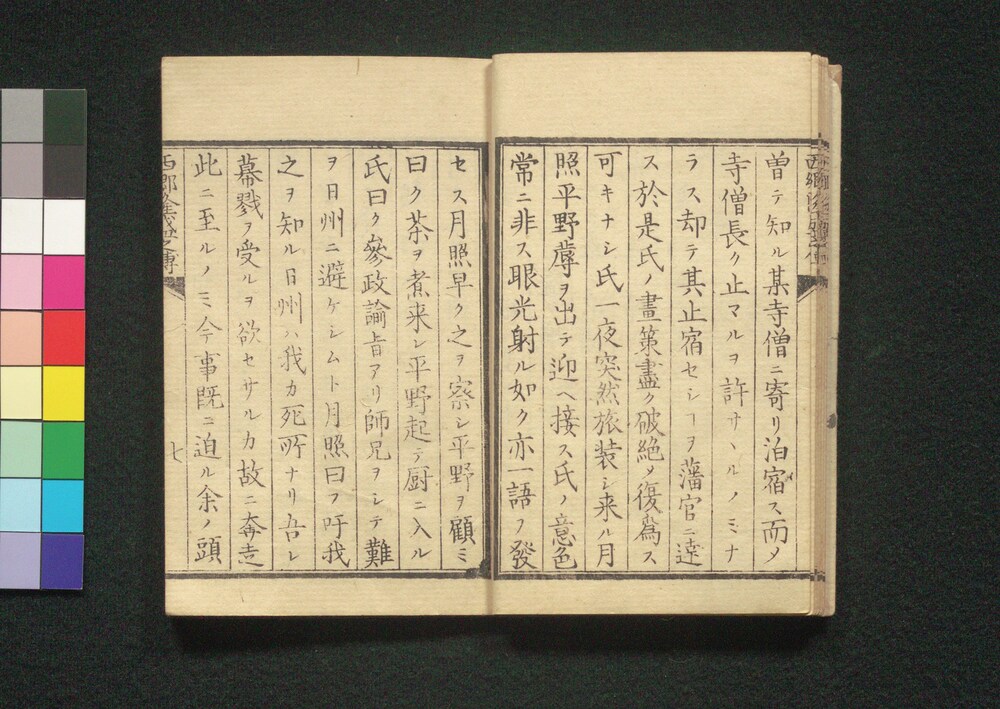 曽テ知ル某寺僧ニ寄リ泊宿ス而〆
寺僧長ク止マルヲ許サヽルノミナ
ラス却テ其止宿セシヿヲ藩官ニ達
ス於是氏ノ畫策盡ク破絶〆復為ス
可キナシ氏一夜突然旅装シ来ル月
照平野蓐ヲ出テ迎ヘ接ス氏ノ意色
常ニ非ス眼光射ル如ク亦一語ヲ發
セス月照早ク之ヲ察シ平野ヲ顧ミ
曰ク茶ヲ煮来レ平野起テ厨ニ入ル
氏曰ク參政諭旨アリ師兄ヲシテ難
ヲ日州ニ避ケシムト月照曰フ吁我
之ヲ知ル日州ハ我カ死所ナリ吾レ
幕戮ヲ受ルヲ欲セサルカ故ニ奔走
此ニ至ルノミ今事既ニ迫ル余ノ頭
七